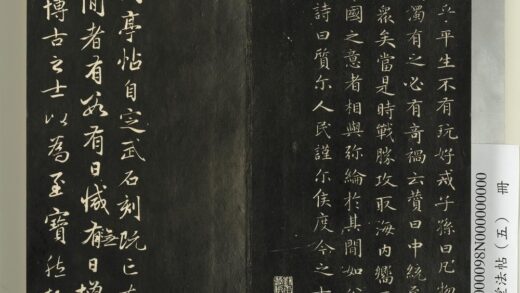 平生不有玩好戒子孫曰凡物
濁有之必有奇禍云贊曰中統至
眾矣當是時戰勝攻取海内嚮
國之意者相與弥綸於其間如
詩曰質尔人民謹尔侯度今之士
亭帖自定武石刻既亡在
間者有數有日減無日增
博古之士以為至寶
冊
法帖(五)
000098N000000000